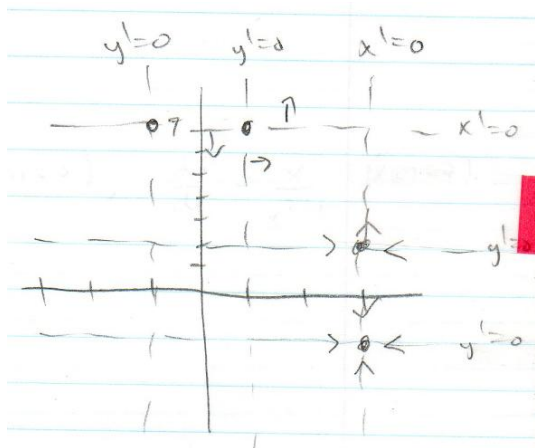 y'=0 y'=0 x'=0
x'=0
y'=0
y'=0